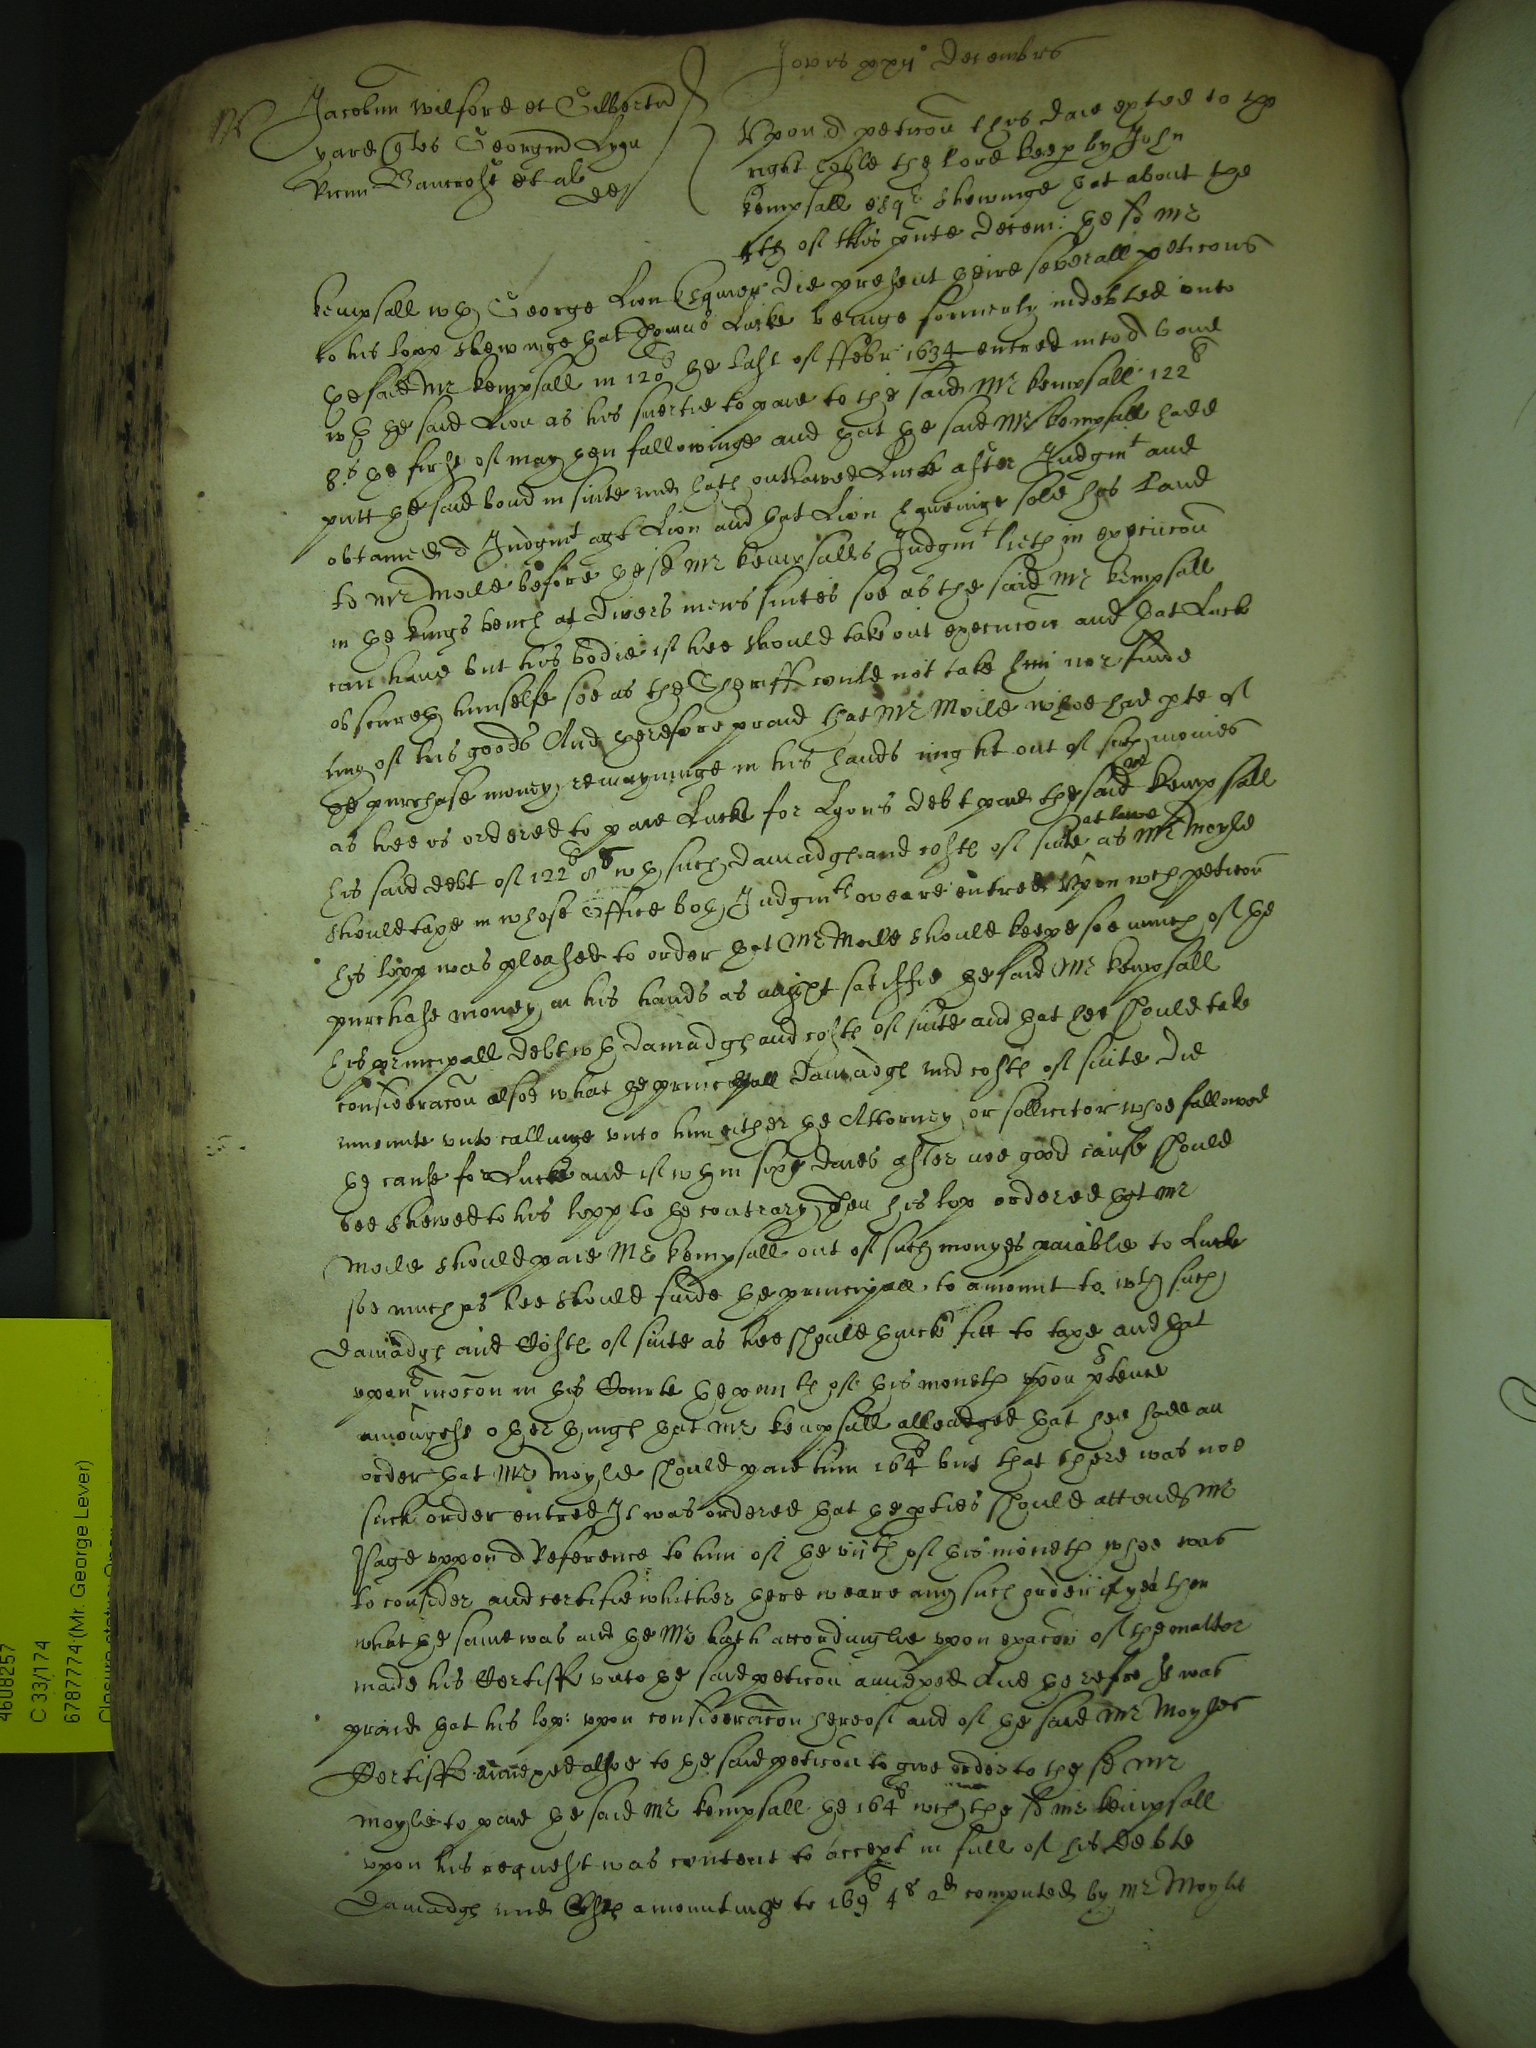 Jovis xxii° Decembris
Jacobum Wilford et Gilbertu
yard Quer Georgiu Lyon
Bancroft et al
def
Upon a peticon this daie exhited to the
right hoble the lord keep by John
kempsall esqr shewinge that about the
4th of this pnte Decem: the sd Mr
kempsall wth George Lion Esquier did present theire severall peticons
to his lopp shewinge that Thomas Lucke beinge formerly indebted unto
the said Mr kempsall in 120li the last of ffebr: 1634 entred into a bond
wth the said Lion as his suertie to paie to the said Mr kempsall 122li
8s the first of may then followinge and that the said Mr kempsall hadd
putt the said bond in suite and hath outlawed Lucke after Judgmt and
obtained a Judgmt agt Lion and that Lion haveinge sold his land
to Mr Moile before the sd Mr kempsalls Judgmt lieth in execucon
in the kings bench at divers mens suites soe as the said Mr kempsall
can have but his bodie if hee should take out execucon and that Lucke
obscureth himselfe soe as the Sheriff could not take him nor finde
any of his goods And therefore praied that Mr Moile whoe had pte of
the purchase money remayninge in his hands might out of such monies
as hee is ordered to paie Lucke for Lyons debt paie the said Mr kempsall
his said debt of 122li 8s wth such damadges and costes of suite at lawe as Mr Moyle
should taxe in whose Office both Judgmts weare entred Upon wch peticon
his lopp was pleased to order that Mr Moile should keepe soe much of the
purchase money in his hands as might satisfie the said Mr kempsall
his principall debt wth damadges and costes of suite and that hee should take
consideracon alsoe what the principall damadges and costes of suite did
amounte unto callinge unto him either the Attorney or sollicitor whoe followed
the cause for Lucke and if wthin sixe daies after noe good cause should
bee shewed to his lopp to the contrary then his lop ordered that Mr
Moile should paie Mr kempsall out of such monyes paiable to Lucke
soe much as hee should finde the principall to amount to wth such
damadges and Costes of suite as hee should thinke fitt to taxe and that
upon a mocon in this Courte the of this moneth upon ptence
amongest other things that Mr kempsall alleadged that hee hadd an
order that Mr Moyle should paie him 164li but that there was noe
such order entred It was ordered that the pties should attend Mr
Page uppon a Reference to him of the viith of this moneth whoe was
to consider and certifie whither there weare any such order if yea then
what the same was and the Mr hath accordinglie upon exacon of the matter
made his Certiff unto the said peticon annexed And therefore It was
praied that his lop: upon consideracon thereof and of the said Mr Moyles
Certiff annexed alsoe to the said peticon to give order to the sd Mr
Moyle to paie the said Mr kempsall the 164li wch the sd Mr kempsall
upon his request was content to accept in full of his debte
damadges and Costes amountinge to 169li 4s 2d computed by Mr Moyles
4608257
C 33/174
6787774 (Mr. George Lever)